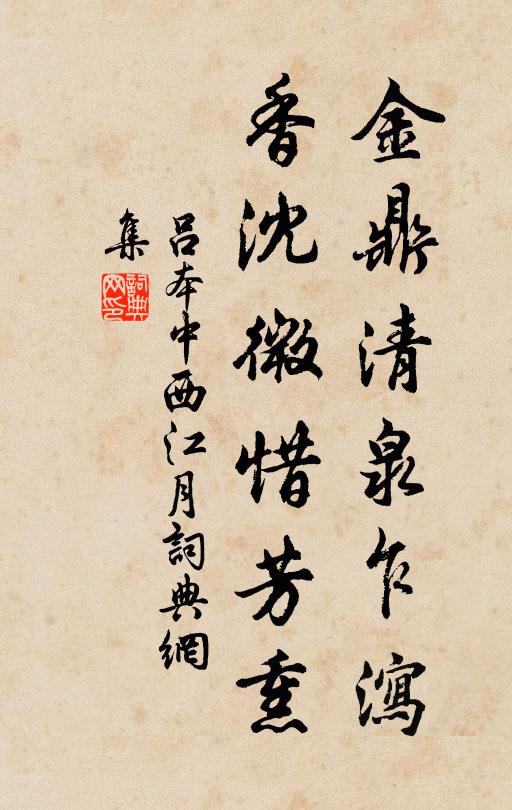 金鼎清泉乍瀉
香沈微惜芳熏
吕本中西江月詞典網
集
詞典网印